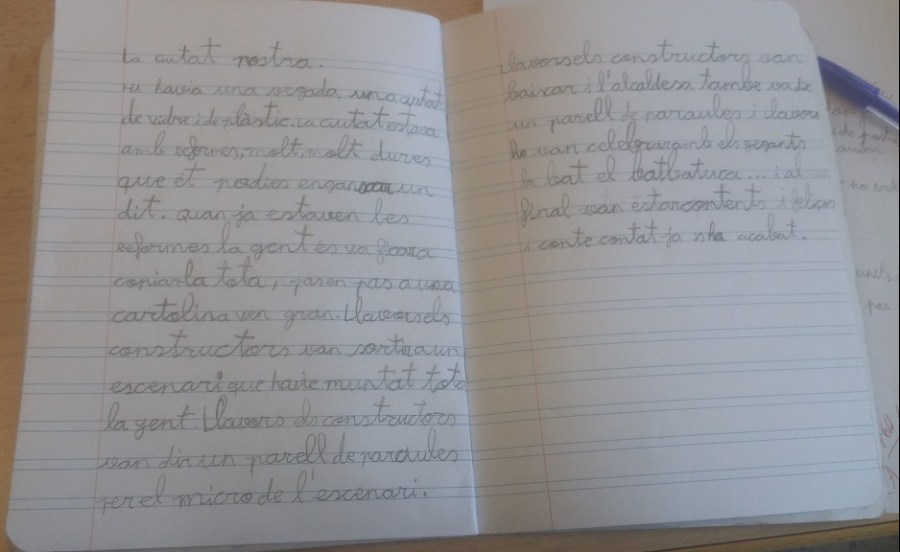 La ciutat nostra.
Hi havia una vegada una ciutat
de vidre i de plàstic. La ciutat estava
amb reformes, molt, molt dures
que et podies enganxar un
dit. Quan ja estaven les
reformes la gent és va posar a
copiar-la tota, pasen pas a una
cartolina ven gran. Llavors els
constructors van sortir a un
escenari que havie muntat tota
la gent. Llavors els constructors
van dir un parell de paraules
per el micro de l'escenari.
Llavors els constructors van
baixar i l'alcaldesa tambe va
un parell de paraules i llavors
ho van celebrar amb els
la bat el batbatuca... i al
final van estar contents i feliços
i conte contat ja sha acabat.